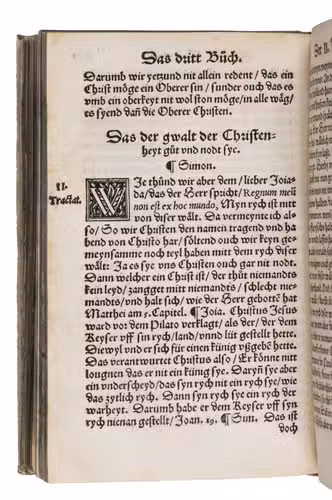 Das dritt Büch.
Darumb wir yetzund nit allein redent / das ein
Christ möge ein Oberer sin / sunder ouch das es
vmb ein oberkeyt nit wol ston möge / in alle wäg /
es syend dañ die Oberer Christen.
Das der gwalt der Christen-
heyt güt vnd nodt sye.
¶ Simon.
II.
Tractat.
WIe thünd wir aber dem / lieber Joia-
da / das der Herr spicht / Regnum meũ
non est ex hoc mundo, Myn rych ist nit
von diser wält. Da vermeynte ich al-
so / So wir Christen den namen tragend vnd ha
bend von Christo har / söltend ouch wir keyn ge-
meynsamme noch teyl haben mit dem rych diser
wält: Ja es sye vns Christen ouch gar nit nodt.
Dann welcher ein Christ ist / der thüt niemandts
kein leyd / zangget mitt niemandts / schlecht nie-
mandts / vnd halt sich / wie der Herr gebotten hat
Matthei am 5. Capitel. ¶ Joia. Christus Jesus
ward vor dem Pilato verklagt / als der / der dem
Keyser vff sin rych / land / vnnd lüt gestellt hette.
Diewyl vnd er sich für einen künig vßgeben hette.
Das verantwurtet Christus also / Er könne nit
lougnen das er nit ein künig sye. Daryñ sye aber
ein vnderscheyd / das syn rych nit ein rych sye / wie
das zytlich rych. Dann syn rych sye ein rych der
warheyt. Darumb habe er dem Keyser vff syn
rych nienan gestellt / Joan. 19. ¶ Sim. Das ist
doch